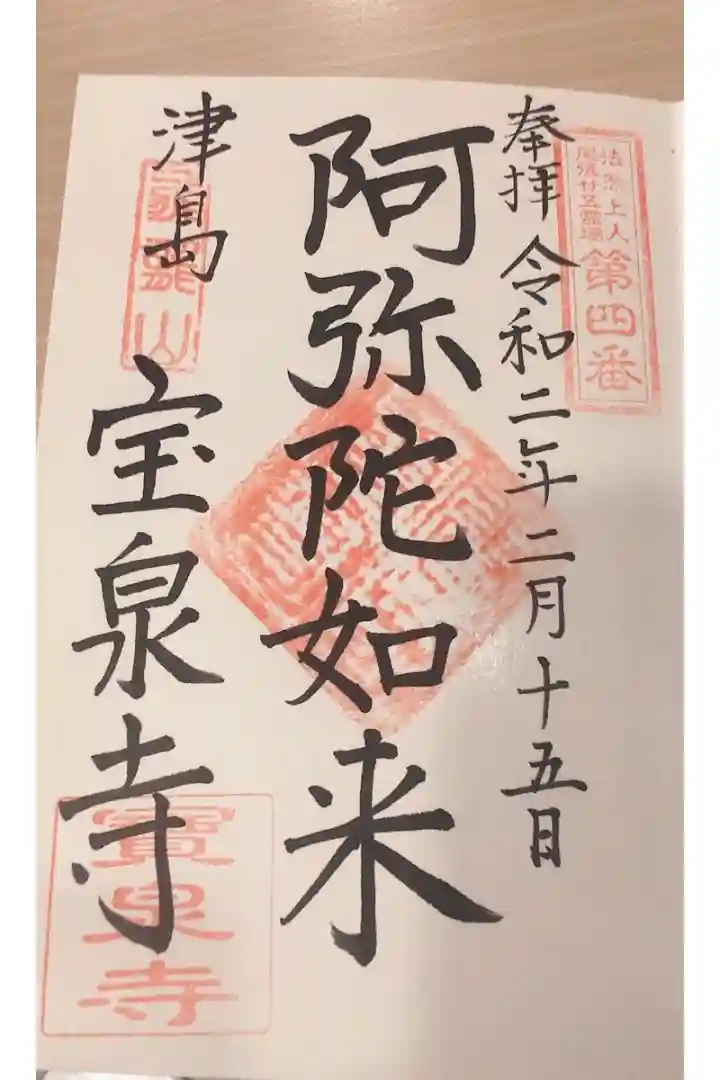 法然上人
尾張廿五霊場
第四番
奉拝 令和二年二月十五日
阿弥陀如来
津島
宝泉寺
寶泉寺